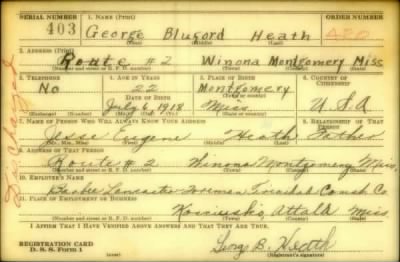 SERIAL NUMBER 1. NAME (Print) ORDER NUMBER
403 George Bluford Heath 420
(First) (Middle) (Last)
2. ADDRESS (Print)
Route #2 Winona Montgomery Miss
(Number and street or R. F. D. number) (Town) (County) (State)
3. TELEPHONE 4. AGE IN YEARS 5. PLACE OF BIRTH 6. COUNTRY OF CITIZENSHIP
No 22 Montgomery
DATE OF BIRTH (Town or county)
July 6, 1918 Miss U.S.A
(Exchange) (Number) (Mo.) (Day) (Yr.) (State or country)
7. NAME OF PERSON WHO WILL ALWAYS KNOW YOUR ADDRESS 8. RELATIONSHIP OF THAT PERSON
Jesse Eugene Heath Father
(Mr., Mrs., Miss) (First) (Middle) (Last)
9. ADDRESS OF THAT PERSON
Route #2 Winona Montgomery Miss
(Number and street or R. F. D. number) (Town) (County) (State)
10. EMPLOYER'S NAME
Lancaster Foreman Const Co.
11. PLACE OF EMPLOYMENT OR BUSINESS
Kosciusko, Attala Miss
(Number and street or R. F. D. number) (Town) (County) (State)
I AFFIRM THAT I HAVE VERIFIED ABOVE ANSWERS AND THAT THEY ARE TRUE.
REGISTRATION CARD
D. S. S. Form 1 George B. Heath
(Registrant's signature)
Discharged